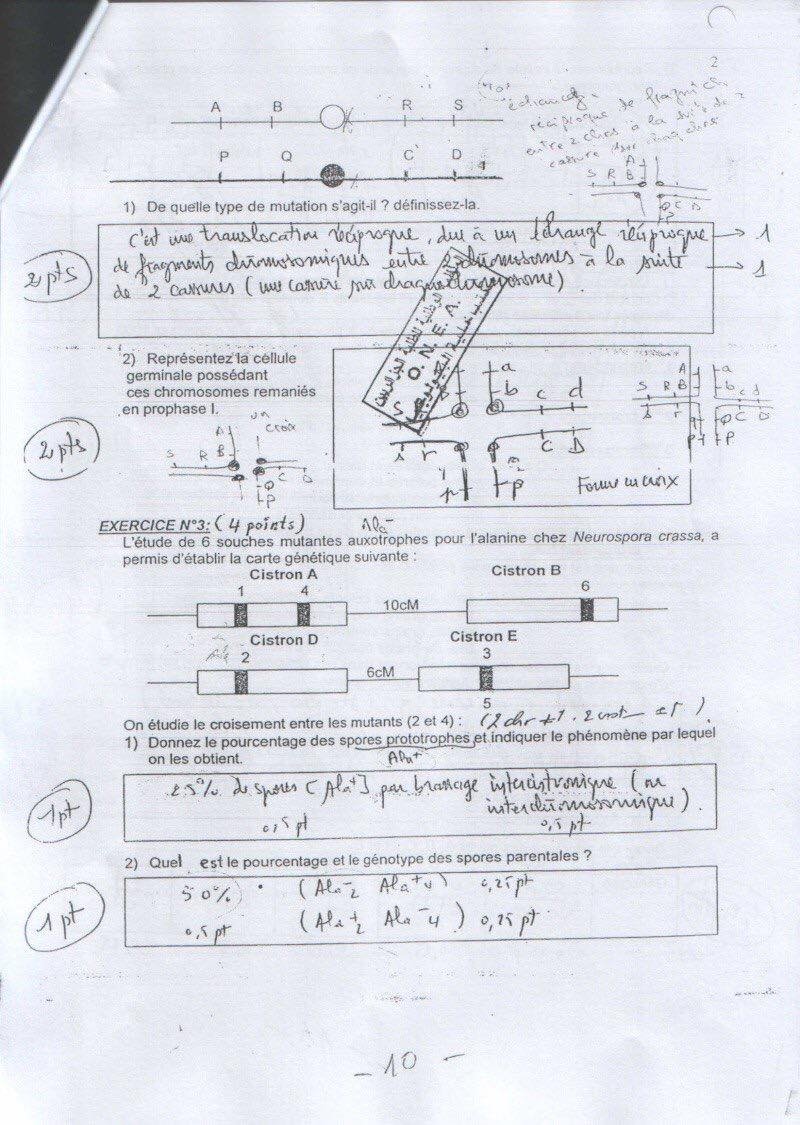 2
A B R S
P Q C D
échange
réciproque de fragments
entre 2 chros à la suite de 2
cassure sur chaque chro
A
S R B
Q C D
P
1) De quelle type de mutation s'agit-il ? définissez-la.
2 pts
c'est une translocation réciproque, due à un échange réciproque → 1
de fragments chromosomiques entre 2 chromosomes à la suite → 1
de 2 cassures (une cassure sur chaque chromosome).
O. N. E. A.
2) Représentez la cellule
germinale possédant
ces chromosomes remaniés
en prophase I.
2 pts
croix
A
S R B
D
Q
P
a
b c d
S
s r C D
p P
Forme en croix
A a
S R B b c d
s r Q C D
P
EXERCICE N°3: (4 points) Ala-
L'étude de 6 souches mutantes auxotrophes pour l'alanine chez Neurospora crassa, a
permis d'établir la carte génétique suivante :
Cistron A Cistron B
1 4 6
10cM
Cistron D Cistron E
2 3
6cM
5
On étudie le croisement entre les mutants (2 et 4) : (2 chr
1) Donnez le pourcentage des spores prototrophes et indiquer le phénomène par lequel
on les obtient. Ala+
1 pt
25% de spores [Ala+] par brassage intercistronique (ou
interchromosomique).
0,5 pt 0,5 pt
2) Quel est le pourcentage et le génotype des spores parentales ?
1 pt
50% (Ala-2 Ala+4) 0,25 pt
0,5 pt (Ala+2 Ala-4) 0,25 pt
- 10 -